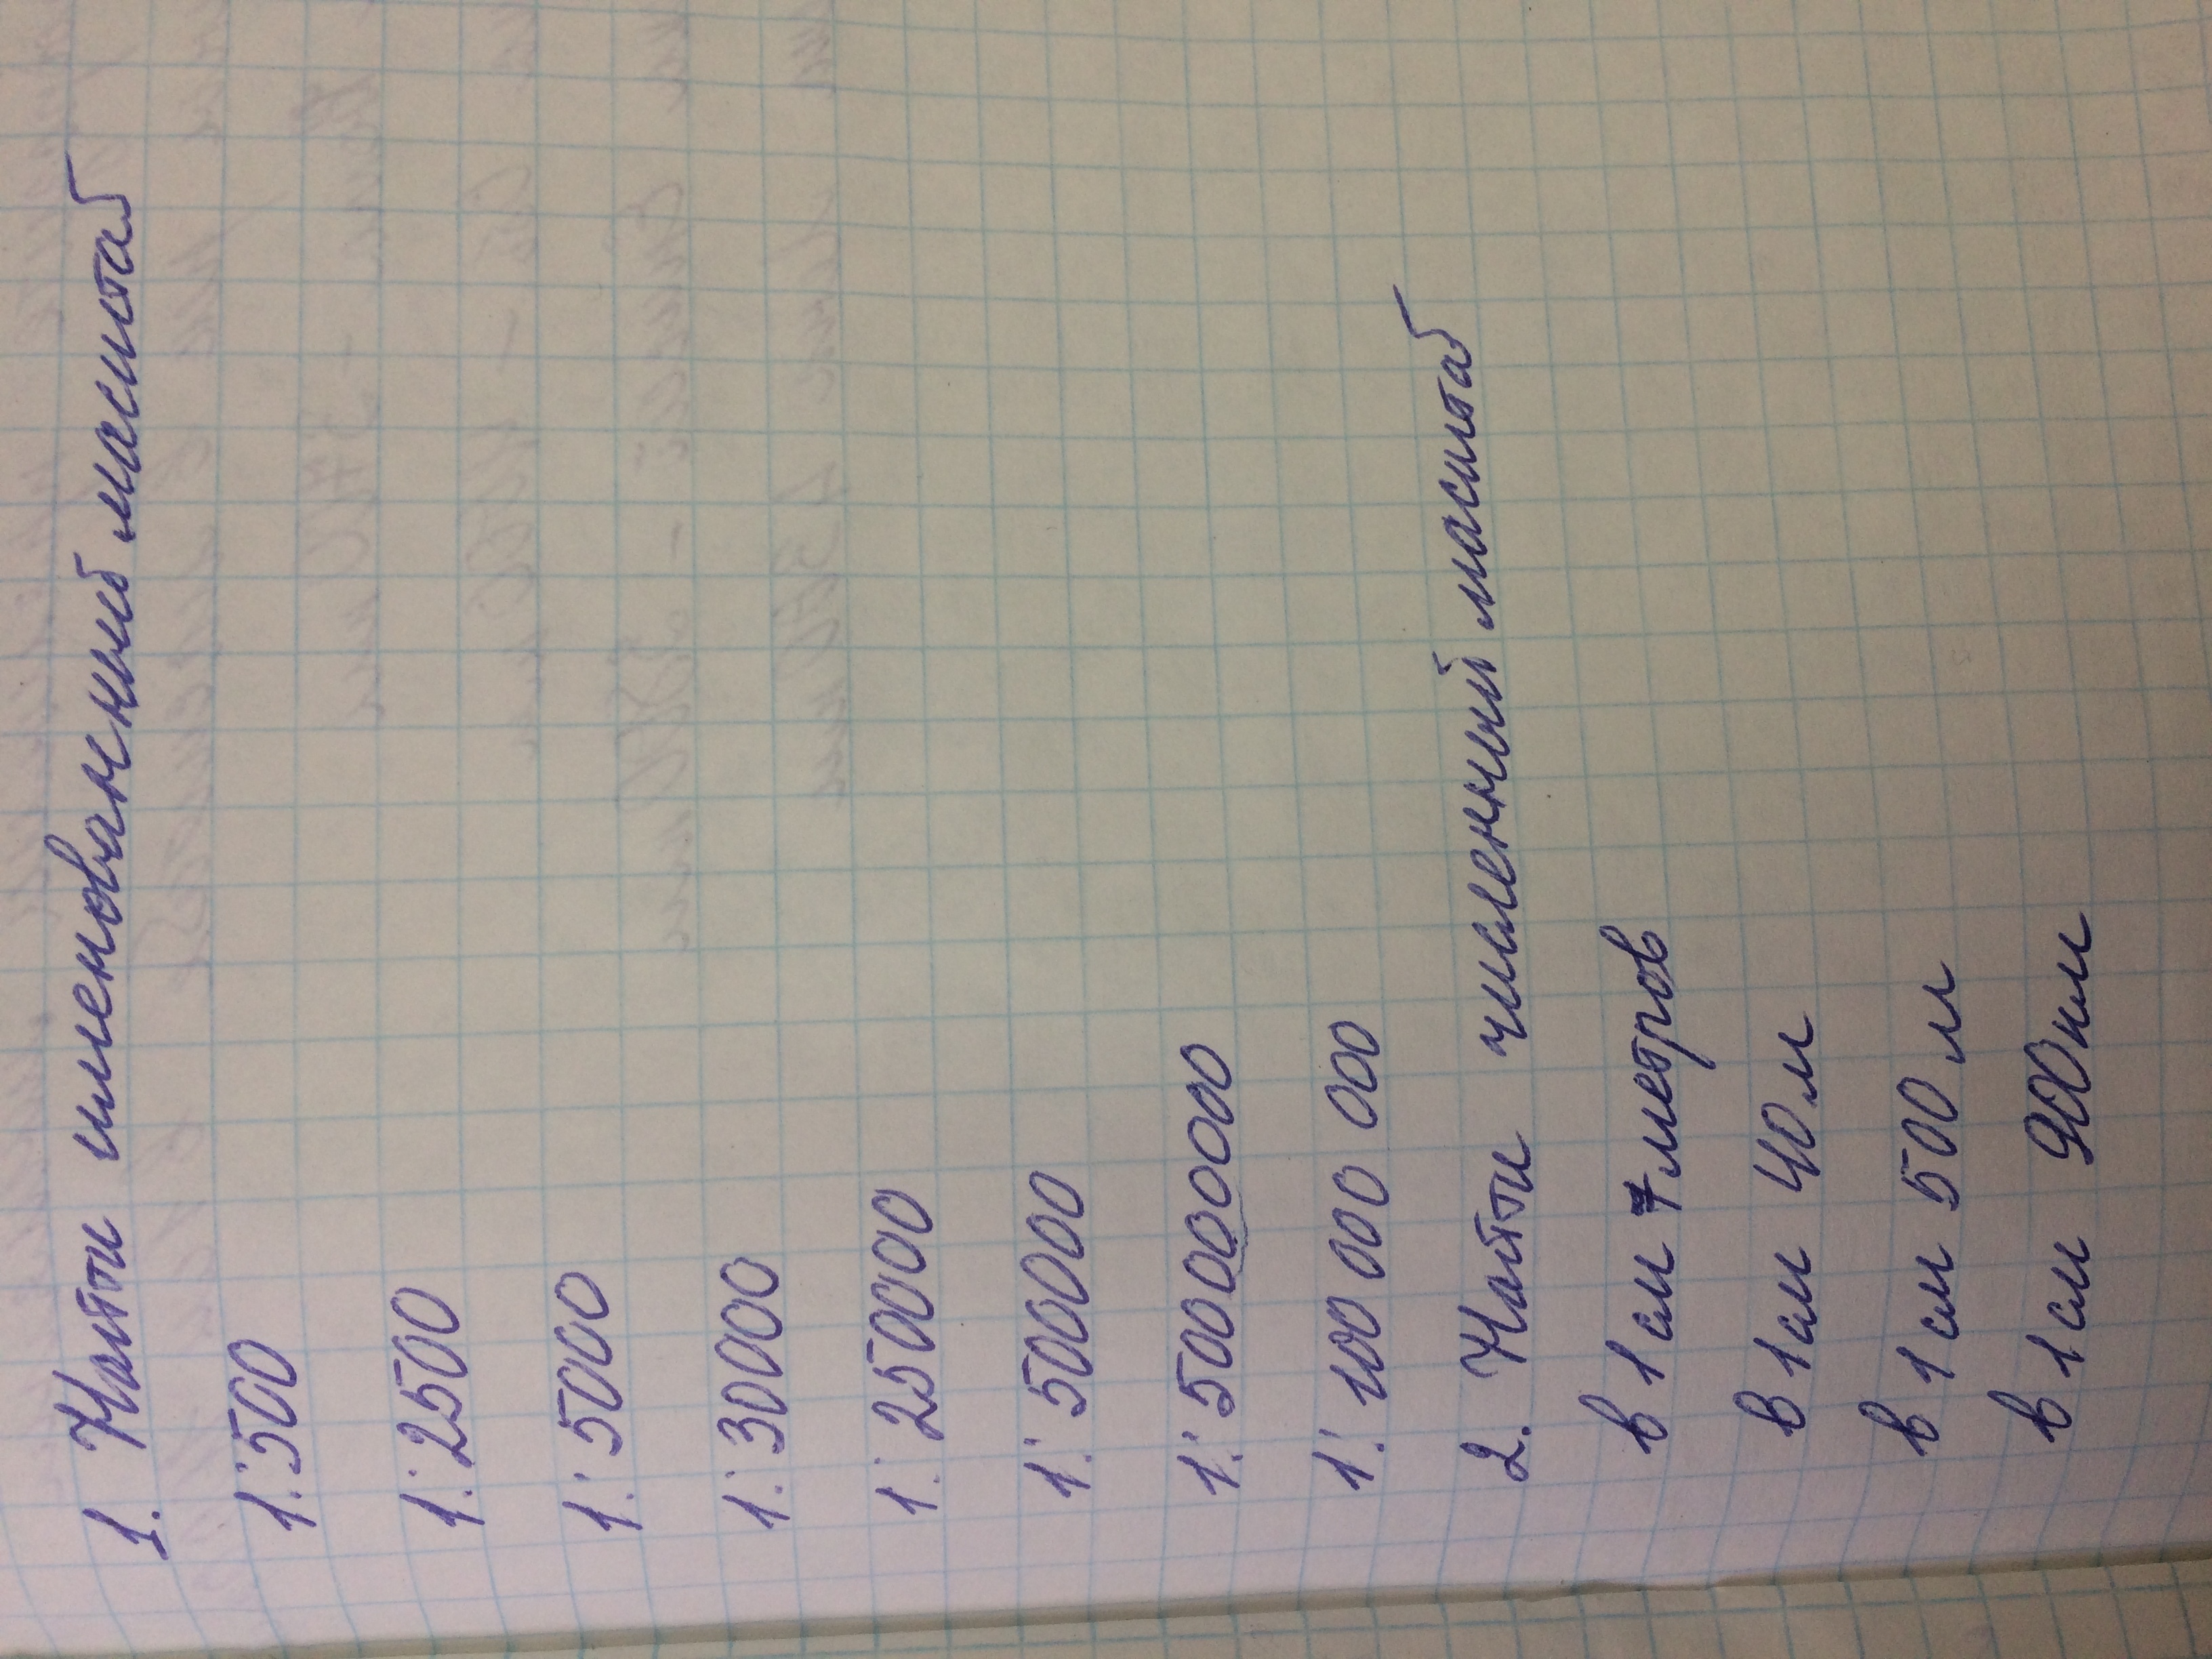 1. Найти именованный масштаб
1:500
1:2500
1:5000
1:3000
1:25000
1:50000
1:50000000
1:100 000 000
2. Найти численный масштаб
в 1 см 7 метров
В 1 см 40 м
в 1 см 500 м
в 1 см 900 км